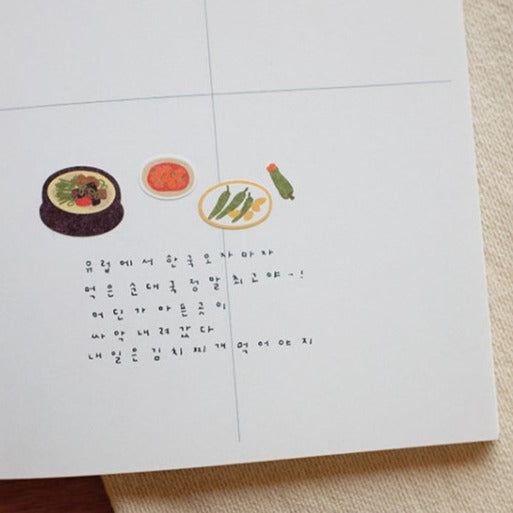 유럽에서 한국오자마자
먹은 순대국 정말 최고야~!
어딘가 아픈곳이
싸악 내려갔다
내일은 김치찌개 먹어야지